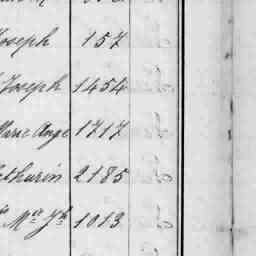 Joseph 157
Joseph 1454
Marie Ange 1717
Mathurin 2185
Mie Jh 1013